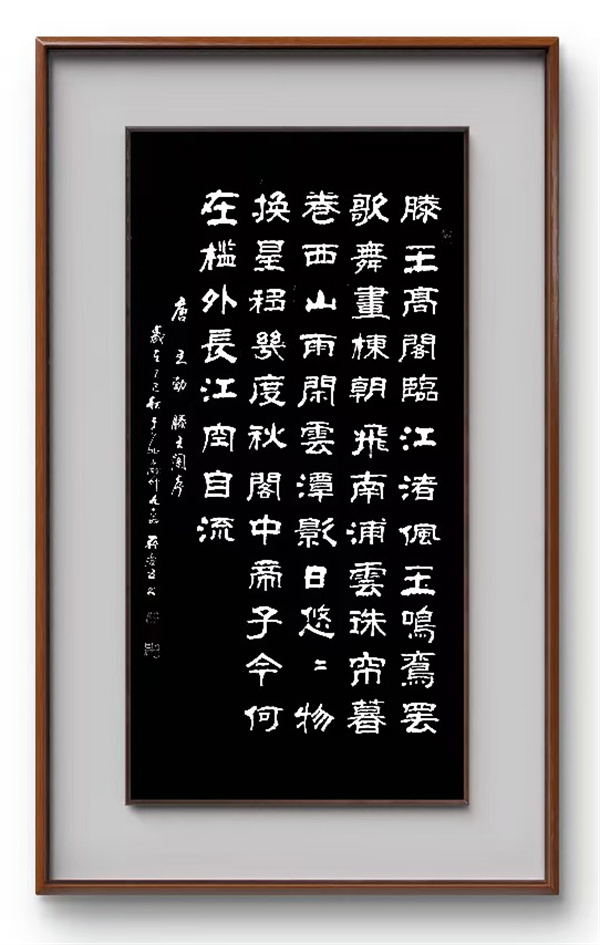 滕王髙閣臨江渚佩玉鳴鸞罷
歌舞畫棟朝飛南浦雲珠帘暮
卷西山雨閑雲潭影日悠〻物
換星移幾度秋閣中帝子今何
在檻外長江空自流
唐 王勃 滕王閣序
歲在丁巳秋